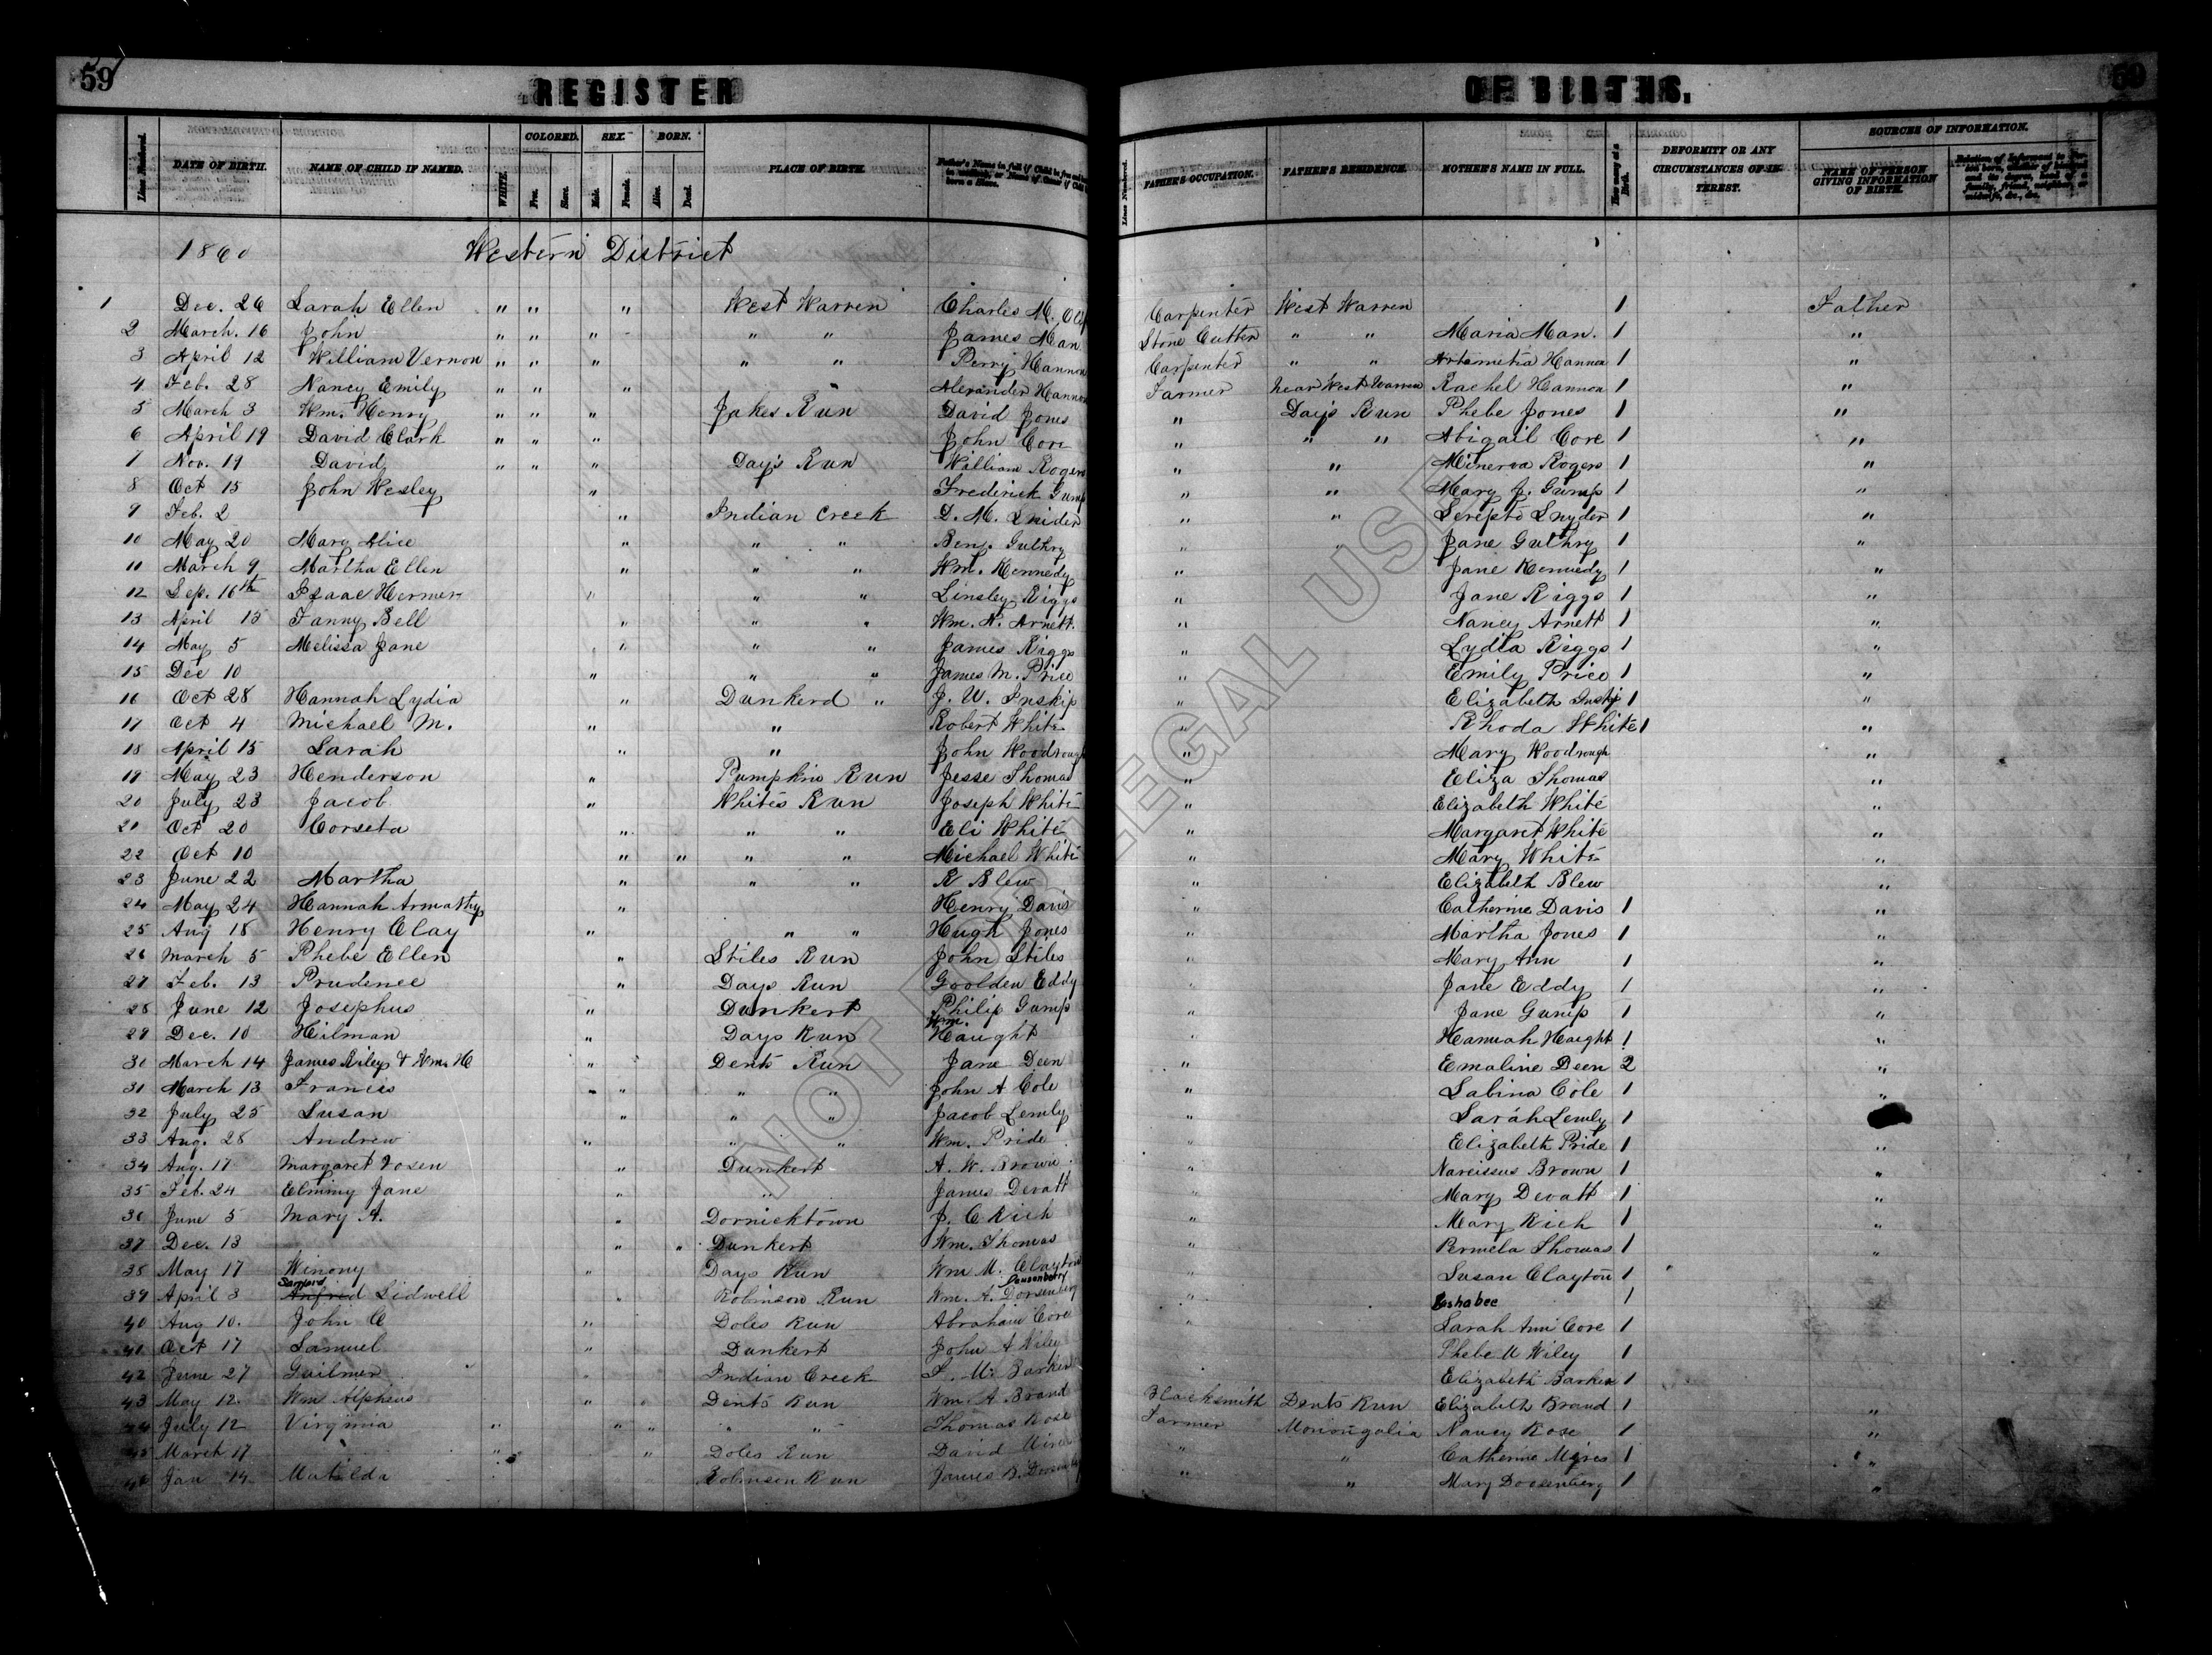 59 REGISTER OF BIRTHS. 59
Lines Numbered. DATE OF BIRTH. NAME OF CHILD IF NAMED. WHITE. COLORED. Free. Slave. SEX. Male. Female. BORN. Alive. Dead. PLACE OF BIRTH. Father's Name in full if Child be free and born in wedlock, or Name of Owner if Child born a Slave. Lines Numbered. FATHER'S OCCUPATION. FATHER'S RESIDENCE. MOTHER'S NAME IN FULL. How many at a Birth. DEFORMITY OR ANY CIRCUMSTANCES OF INTEREST. SOURCES OF INFORMATION. NAME OF PERSON GIVING INFORMATION OF BIRTH.
1860 Western District
1 Dec. 26 Sarah Ellen " " " West Warren Charles M. Carpenter West Warren 1 Father
2 March. 16 John " " " " " James Man Stone Cutter " " Maria Man. 1 "
3 April 12 William Vernon " " " " " Perry Hannon Carpenter " " Artemetia Hannon 1 "
4 Feb. 28 Nancy Emily " " " " Alexander Hannon Farmer near West Warren Rachel Hannon 1 "
5 March 3 Wm. Henry " " " Jakes Run David Jones " Days Run Phebe Jones 1 "
6 April 19 David Clark " " " John Core " " " Abigail Core 1 "
7 Nov. 19 David " " " Day's Run William Rogers " " Minerva Rogers 1 "
8 Oct 15 John Wesley " Frederick Gump " " Mary J. Gump 1 "
9 Feb. 2 " Indian Creek D. M. Snider " " Serepto Snyder 1 "
10 May 20 Mary Alice " " " Ben. Guthry " " Jane Guthry 1 "
11 March 9 Martha Ellen " " " Wm. Kennedy " Jane Kennedy 1 "
12 Sep. 16th Isaac Hermer " " " Linsley Riggs " Jane Riggs 1 "
13 April 15 Fanny Bell " " " Wm. N. Arnett. " Nancy Arnett 1 "
14 May 5 Melissa Jane " " " James Riggs " Lydia Riggs 1 "
15 Dec 10 " " " James M. Price " Emily Price 1 "
16 Oct 28 Hannah Lydia " Dunkerd " J. W. Inskip " Elizabeth Inskip 1 "
17 Oct 4 Michael M. " " Robert White " Rhoda White 1 "
18 April 15 Sarah " " John Woodrough " Mary Woodrough "
19 May 23 Henderson " Pumpkin Run Jesse Thomas " Eliza Thomas "
20 July 23 Jacob " Whites Run Joseph White " Elizabeth White "
21 Oct 20 Corseta " " " Eli White " Margaret White "
22 Oct 10 " " " " Michael White " Mary White "
23 June 22 Martha " " " R Blew " Elizabeth Blew "
24 May 24 Hannah Armathy " Henry Davis " Catherine Davis 1 "
25 Aug 18 Henry Clay " " " Hugh Jones " Martha Jones 1 "
26 March 5 Phebe Ellen " Stiles Run John Stiles " Mary Ann 1 "
27 Feb. 13 Prudence " Days Run Goolden Eddy " Jane Eddy 1 "
28 June 12 Josephus " Dunkert Philip Gump " Jane Gump 1 "
29 Dec. 10 Hilman " Days Run Wm. Haught " Hannah Haught 1 "
30 March 14 James Riley & Wm. H " Dents Run Jane Deen " Emaline Deen 2 "
31 March 13 Francis " " " " John A Cole " Sabina Cole 1 "
32 July 25 Susan " " " Jacob Lemly " Sarah Lemly 1
33 Aug. 28 Andrew " " " Wm. Pride " Elizabeth Pride 1 "
34 Aug. 17 Margaret Vosen " Dunkert A. W. Brown " Narcissus Brown 1 "
35 Feb. 24 Elminy Jane " " James Devatt " Mary Devatt 1 "
36 June 5 Mary A. " Dornicktown J. C Rich " Mary Rich 1 "
37 Dec. 13 " " Dunkert Wm. Thomas " Permela Thomas 1 "
38 May 17 Winony " Days Run Wm M. Clayton Susan Clayton 1
39 April 3 Sidwell " Robinson Run Wm. A. Dousenberry " Bashabee 1
40 Aug 10. John C " Doles Run Abraham Core " Sarah Ann Core 1
41 Oct 17 Samuel " Dunkert John A Wiley Phebe U Wiley 1
42 June 27 Guilmer " Indian Creek Barker Elizabeth Barker 1
43 May 12. Wm Alpheus " Dents Run Wm. A. Brand Blacksmith Dents Run Elizabeth Brand 1 "
44 July 12 Virginia " " " " " Thomas Rose Farmer Monongalia Nancy Rose 1 "
45 March 17 " " Doles Run David " " Catherine Myres 1 "
46 Jan 14 Matilda Robinson Run James B. " " Mary Doosenberg 1 "
NOT FOR LEGAL USE